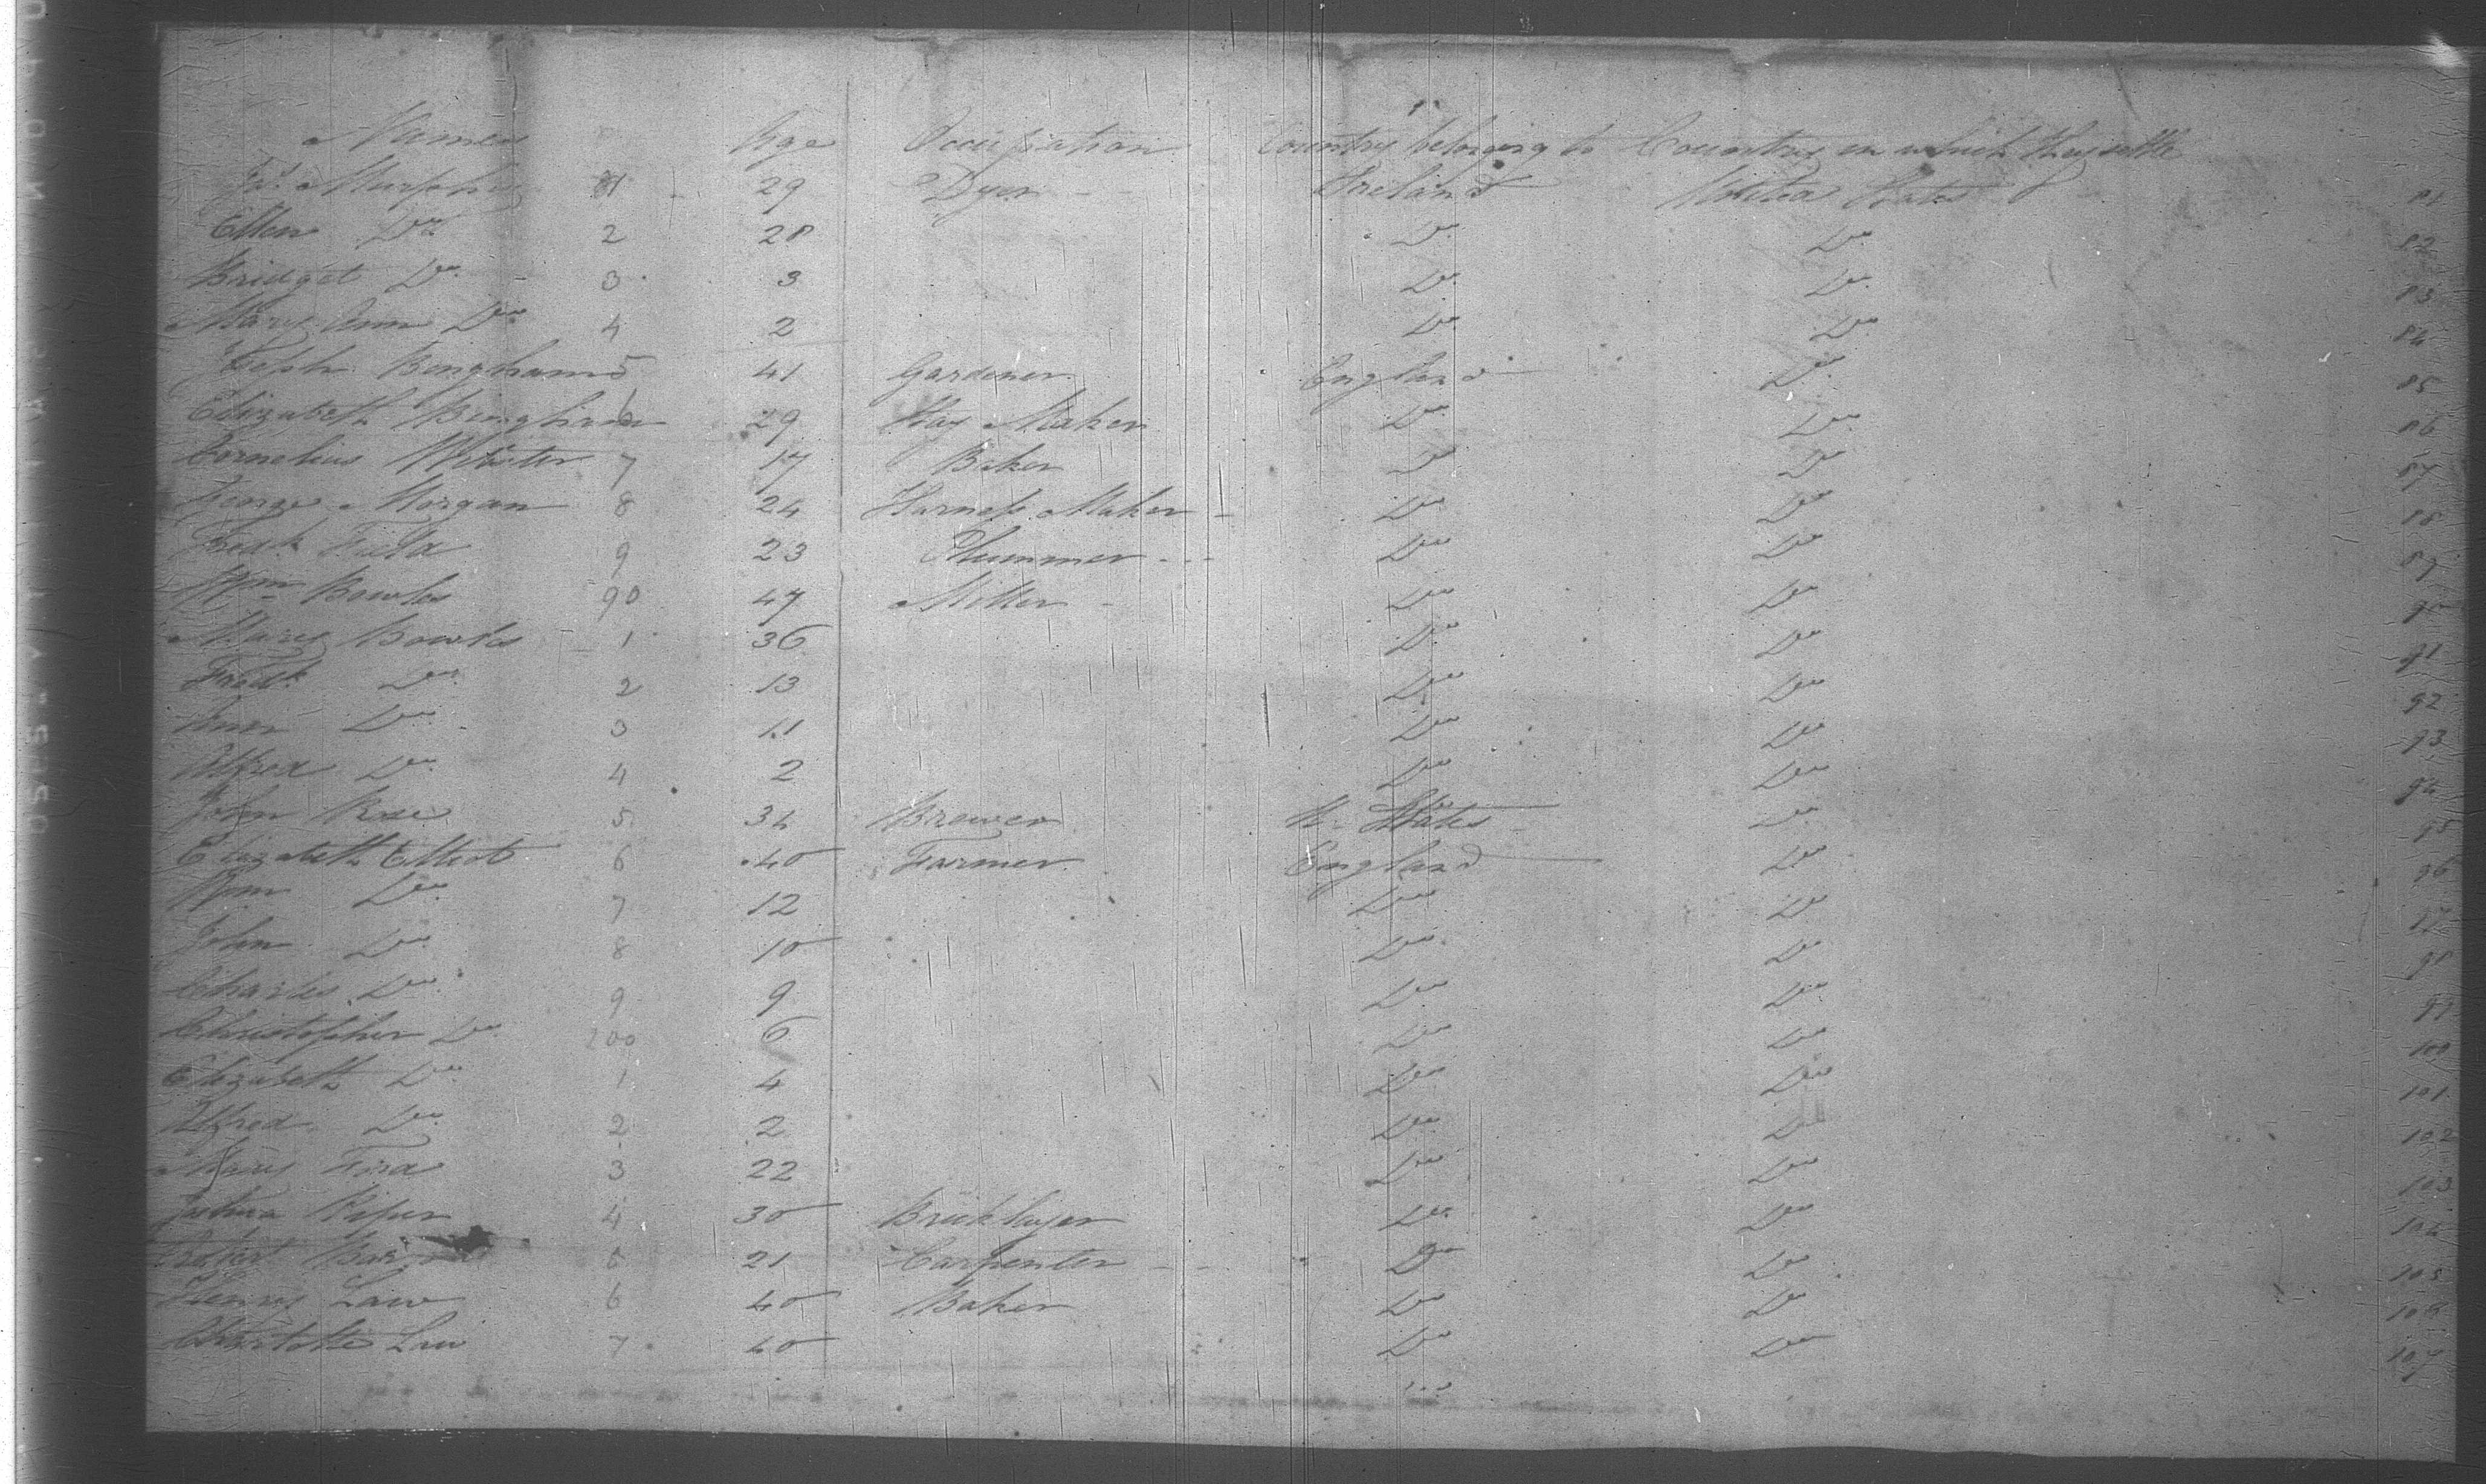 Names Age Occupation Country belonging to Country in which they settle
Jas Murphy 81 29 Dyer Ireland United States 81
Ellen Do 2 28 Do Do 82
Bridget Do 3 3 Do Do 83
Mary Ann Do 4 2 Do Do 84
Joseph Bingham 5 41 Gardener England Do 85
Elizabeth Bingham 6 29 Maker Do Do 86
Cornelius Webster 7 17 Baker Do Do 87
George Morgan 8 24 Harness Maker Do Do 88
Fredk Field 9 23 Plummer Do Do 89
Wm Bowles 90 47 Miller Do Do 90
Mary Bowles 1 36 Do Do 91
Fredk Do 2 13 Do Do 92
Ann Do 3 11 Do Do 93
Alfred Do 4 2 Do Do 94
John Rose 5 34 Brewer U. States Do 95
Elizabeth Elliot 6 40 Farmer England Do 96
Wm Do 7 12 Do Do 97
John Do 8 10 Do Do 98
Charles Do 9 9 Do Do 99
Christopher Do 100 6 Do Do 100
Elizabeth Do 1 4 Do Do 101
Alfred Do 2 2 Do Do 102
Mary 3 22 Do Do 103
Joshua Piper 4 30 Bricklayer Do Do 104
5 21 Carpenter Do Do 105
Henry Law 6 40 Baker Do Do 106
Charlotte Law 7 40 Do Do 107